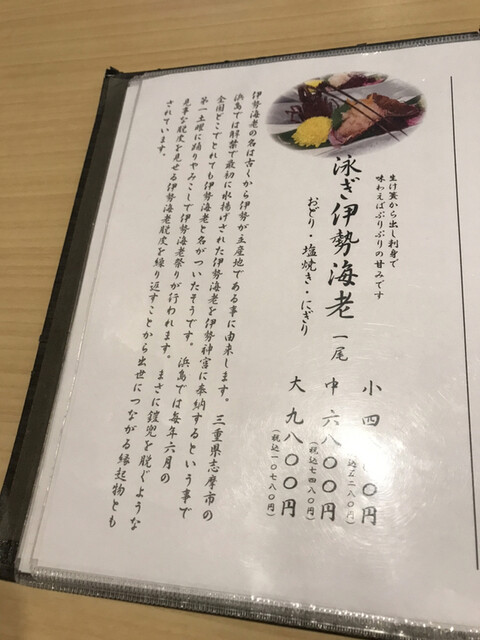 生け簀から出し刺身で
味わえばぷりぷりの甘みです
泳ぎ伊勢海老 一尾
おどり・塩焼き・にぎり
小 四 〇円
税込五二八〇円)
中 六八〇〇円
(税込七四八〇円)
大 九八〇〇円
(税込一〇七八〇円)
伊勢海老の名は古くから伊勢が主産地である事に由来します。 三重県志摩市の
浜島では解禁で最初に水揚げされた伊勢海老を伊勢神宮に奉納するという事で
全国どこでとれても伊勢海老と名がついたそうです。 浜島では毎年六月の
第一土曜に踊りやみこしで伊勢海老祭りが行われます。 まさに鎧兜を脱ぐような
見事な脱皮を見せる伊勢海老脱皮を繰り返すことから出世につながる縁起物とも
されています。